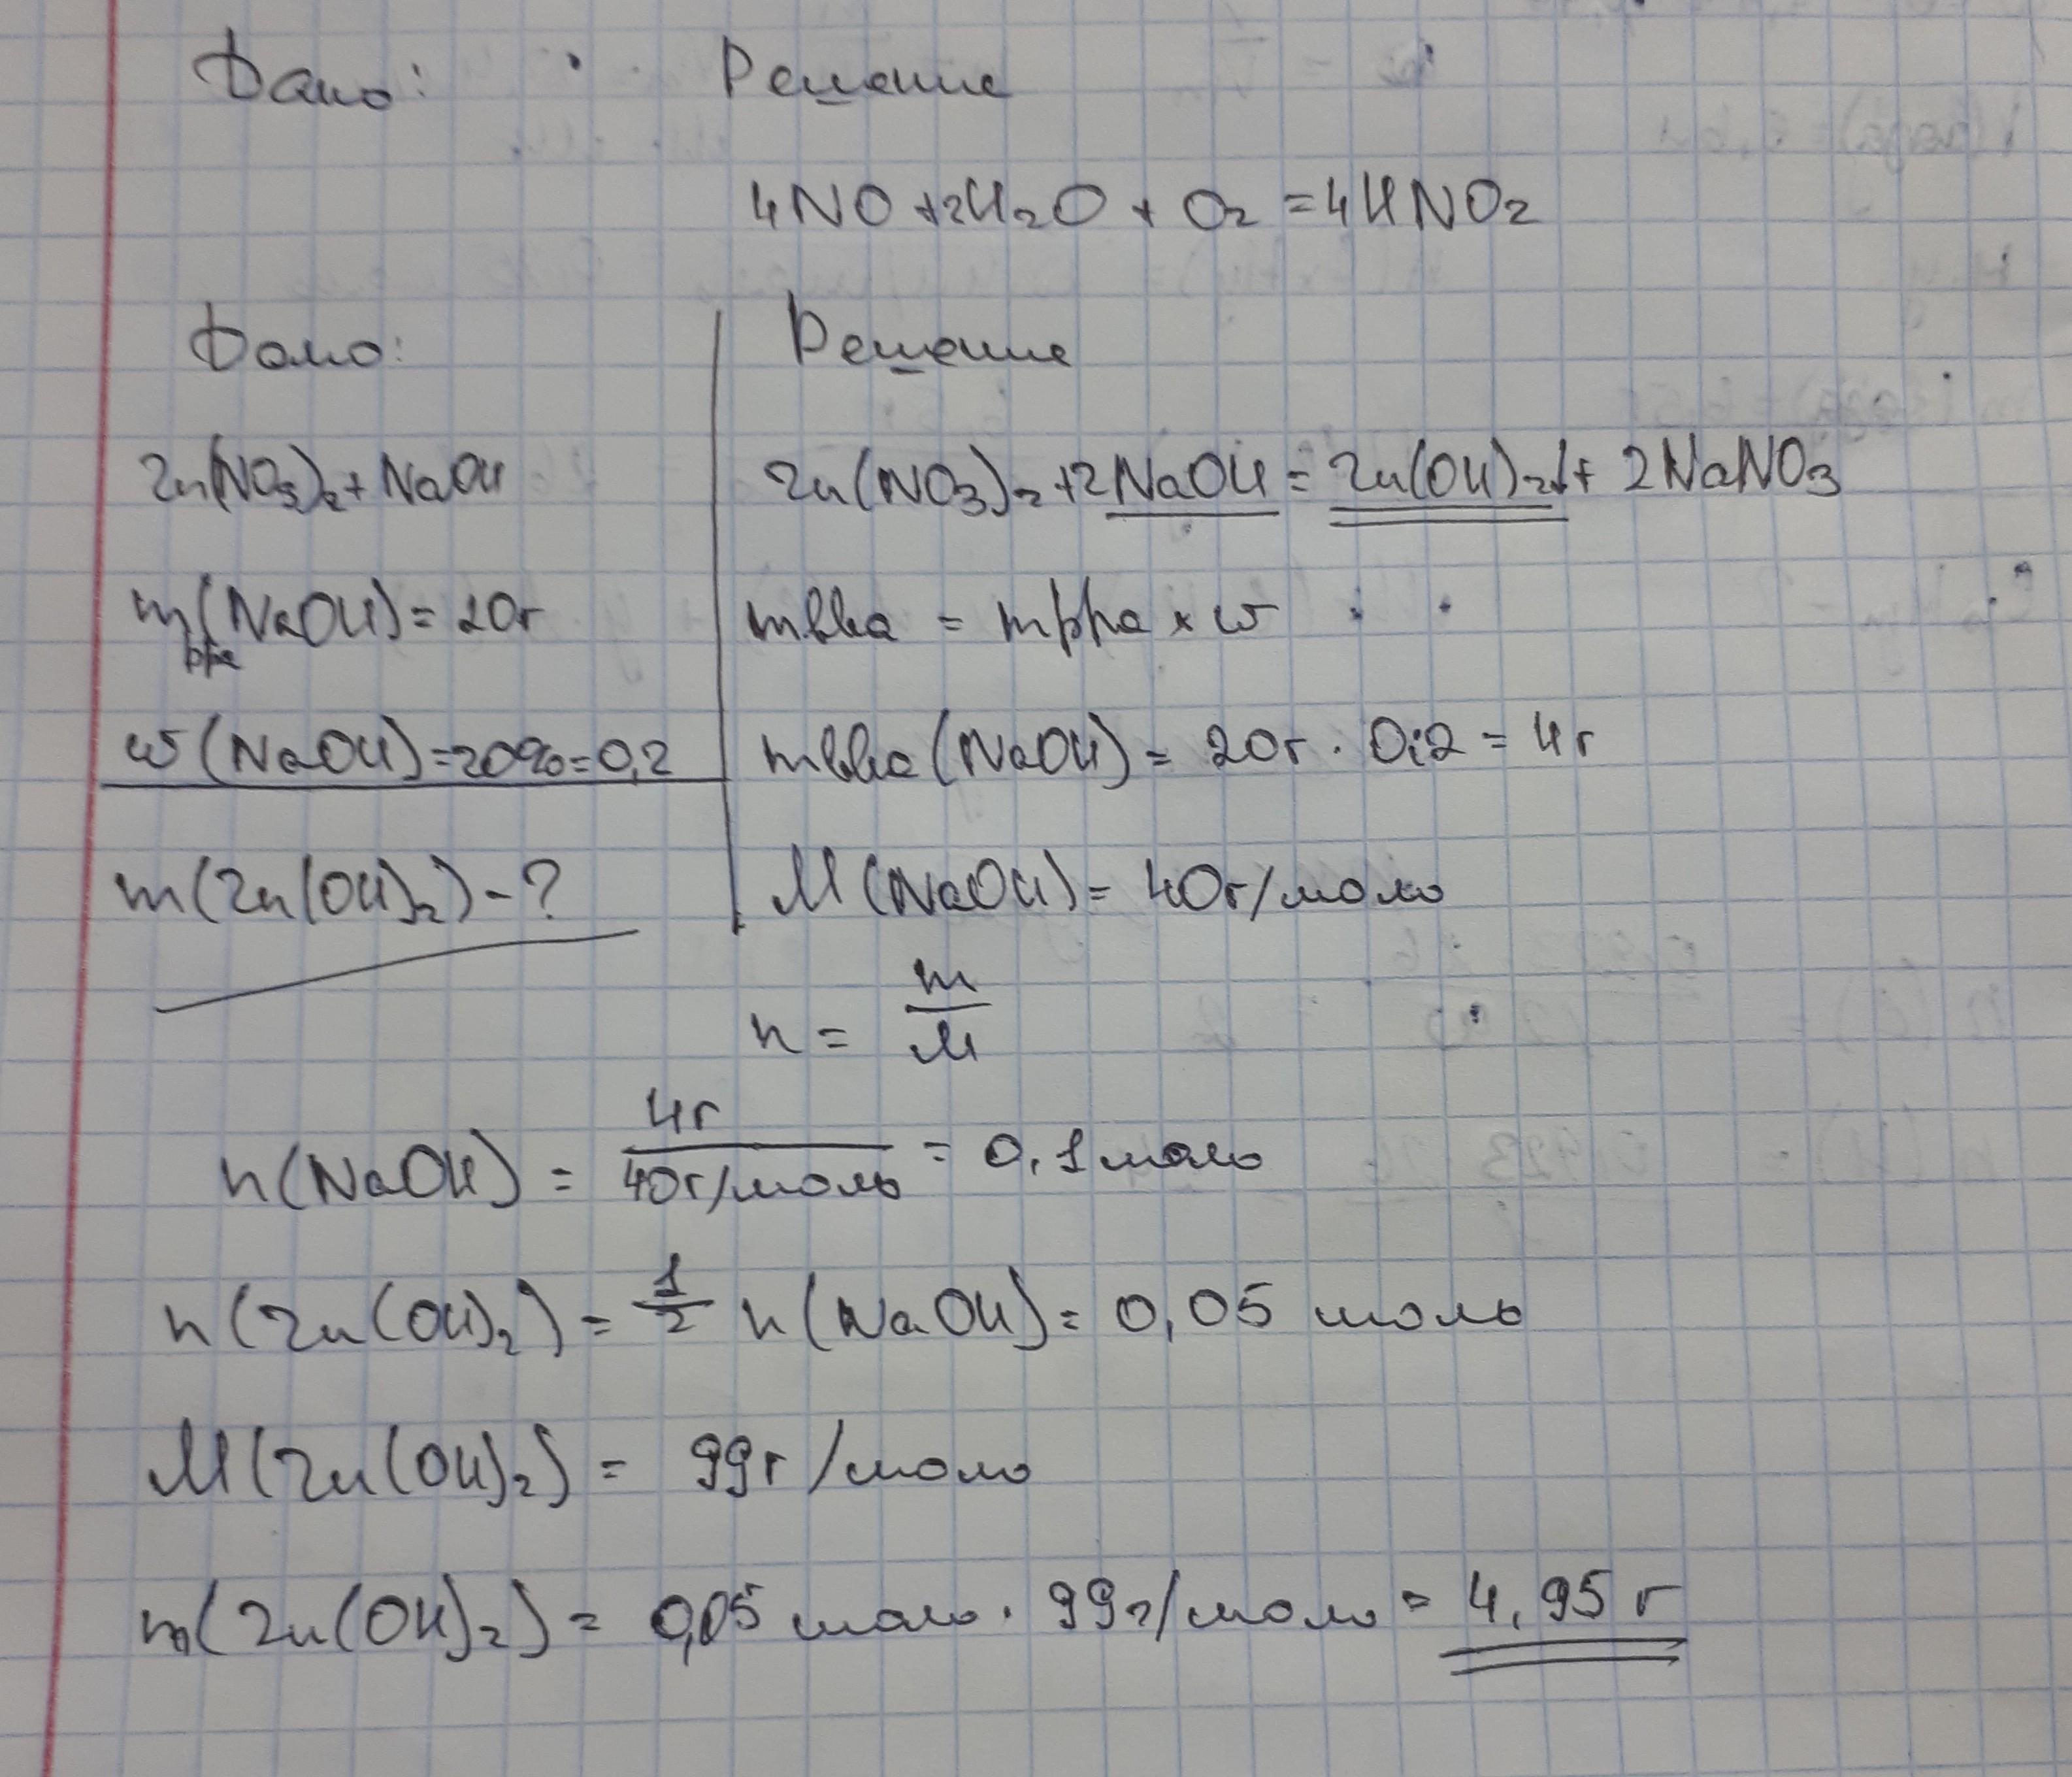 Дано: Решение
4NO + 2H₂O + O₂ = 4HNO₂
Дано: Решение
Zn(NO₃)₂ + NaOH Zn(NO₃)₂ + 2NaOH = Zn(OH)₂↓ + 2NaNO₃
m р-ра (NaOH) = 20г mв-ва = mр-ра × w
w(NaOH) = 20% = 0,2 mв-ва (NaOH) = 20г · 0,2 = 4г
m(Zn(OH)₂) - ? M(NaOH) = 40г/моль
n = m/M
n(NaOH) = 4г / 40г/моль = 0,1 моль
n(Zn(OH)₂) = 1/2 n(NaOH) = 0,05 моль
M(Zn(OH)₂) = 99г/моль
m(Zn(OH)₂) = 0,05 моль · 99г/моль = 4,95 г